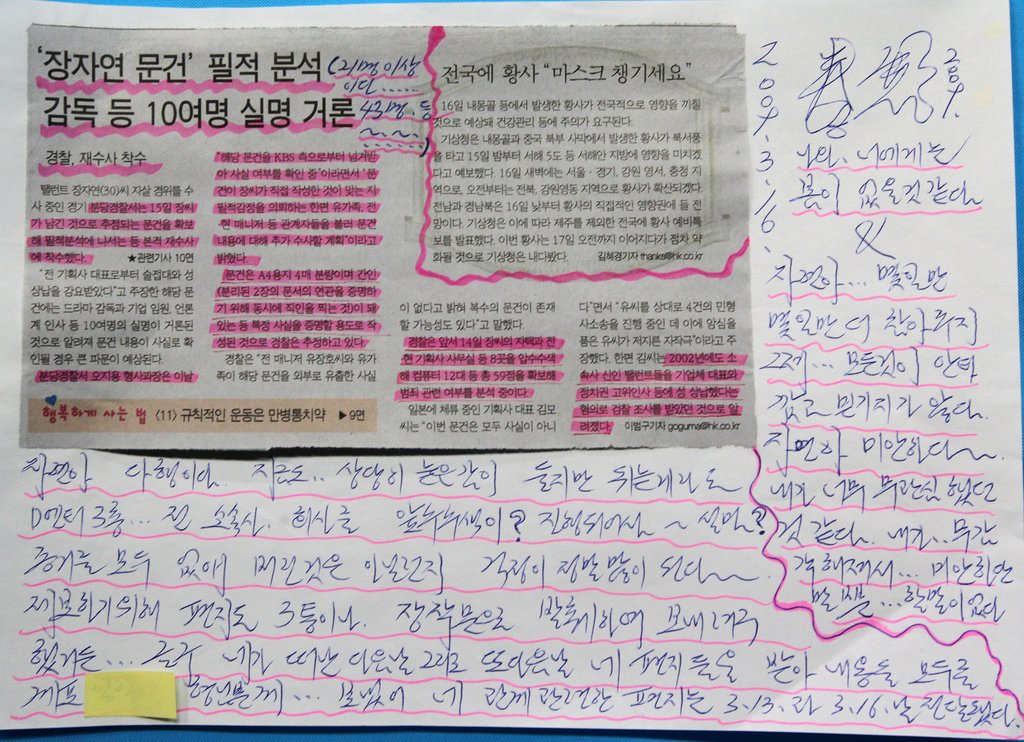 '장자연 문건' 필적 분석
감독 등 10여명 실명 거론
(21명 이상
이다......
43명. 등
~.~.~.)
경찰, 재수사 착수
탤런트 장자연(30)씨 자살 경위를 수
사 중인 경기 분당경찰서는 15일 장씨
가 남긴 것으로 추정되는 문건을 확보
해 필적분석에 나서는 등 본격 재수사
에 착수했다. ★관련기사 10면
"전 기획사 대표로부터 술접대와 성
상납을 강요받았다"고 주장한 해당 문
건에는 드라마 감독과 기업 임원, 언론
계 인사 등 10여명의 실명이 거론된
것으로 알려져 문건 내용이 사실로 확
인될 경우 큰 파문이 예상된다.
분당경찰서 오지용 형사과장은 이날
"해당 문건을 KBS 측으로부터 넘겨받
아 사실 여부를 확인 중"이라면서 "문
건이 장씨가 직접 작성한 것이 맞는 지
필적감정을 의뢰하는 한편 유가족, 전
현 매니저 등 관계자들을 불러 문건
내용에 대해 추가 수사할 계획"이라고
밝혔다.
문건은 A4용지 4매 분량이며 간인
(분리된 2장의 문서의 연관을 증명하
기 위해 동시에 직인을 찍는 것)이 돼
있는 등 특정 사실을 증명할 용도로 작
성된 것으로 경찰은 추정하고 있다.
경찰은 "전 매니저 유장호씨와 유가
족이 해당 문건을 외부로 유출한 사실
이 없다고 밝혀 복수의 문건이 존재
할 가능성도 있다"고 말했다.
경찰은 앞서 14일 장씨의 자택과 전
현 기획사 사무실 등 8곳을 압수수색
해 컴퓨터 12대 등 총 59점을 확보해
범죄 관련 여부를 분석 중이다.
일본에 체류 중인 기획사 대표 김모
씨는 "이번 문건은 모두 사실이 아니
다"면서 "유씨를 상대로 4건의 민형
사소송을 진행 중인 데 이에 앙심을
품은 유씨가 저지른 자작극"이라고 주
장했다. 한편 김씨는 2002년에도 소
속사 신인 탤런트들을 기업체 대표와
정치권 고위인사 등에 성 상납했다는
혐의로 검찰 조사를 받았던 것으로 알
려졌다. 이범구기자 goguma@hk.co.kr
행복하게 사는 법 (11) 규칙적인 운동은 만병통치약 ▶9면
전국에 황사 "마스크 챙기세요"
16일 내몽골 등에서 발생한 황사가 전국적으로 영향을 끼칠
것으로 예상돼 건강관리 등에 주의가 요구된다.
기상청은 내몽골과 중국 북부 사막에서 발생한 황사가 북서풍
을 타고 15일 밤부터 서해 5도 등 서해안 지방에 영향을 미치겠
다고 예보했다. 16일 새벽에는 서울·경기, 강원 영서, 충청 지
역으로, 오전부터는 전북, 강원영동 지역으로 황사가 확산되겠다.
전남과 경남북은 16일 낮부터 황사의 직접적인 영향권에 들 전
망이다. 기상청은 이에 따라 제주를 제외한 전국에 황사 예비특
보를 발표했다. 이번 황사는 17일 오전까지 이어지다가 점차 약
화될 것으로 기상청은 내다봤다. 김혜경기자 thanks@hk.co.kr
2009.3.16.
2009.
나와. 너에게는
봄이 없을것 같다.
&
자연아... 몇일만
몇일만 더 참아주지
그래... 모든것이 안타
깝고 믿기지가 않다.
자연아 미안하다~~.
내가 너무 무관심 했던
것 같다. 내가.. 무감
각 해져서... 미안하단
말 뿐... 할말이 없다
자연아 다행이다. 지금도.. 상당히 늦은감이 들지만 뒤늦게라도
D엔터 그룹... 전 소속사. 회사를 압수수색이? 진행되어서 ~ 설마?
증거를 모두 없애 버린것은 아닐런지 걱정이 정말 많이 된다~~.
제보하기 위해 편지도 3통이나. 장작문으로 발췌하여 보내려구
했거든... 근데 네가 떠난 다음날 그리고 또다음날 네 편지들을 받아 내용들 모두를
형님께... 보냈어 네 관계 관련한 편지는 3.13.과 3.16.날 전달됐다.